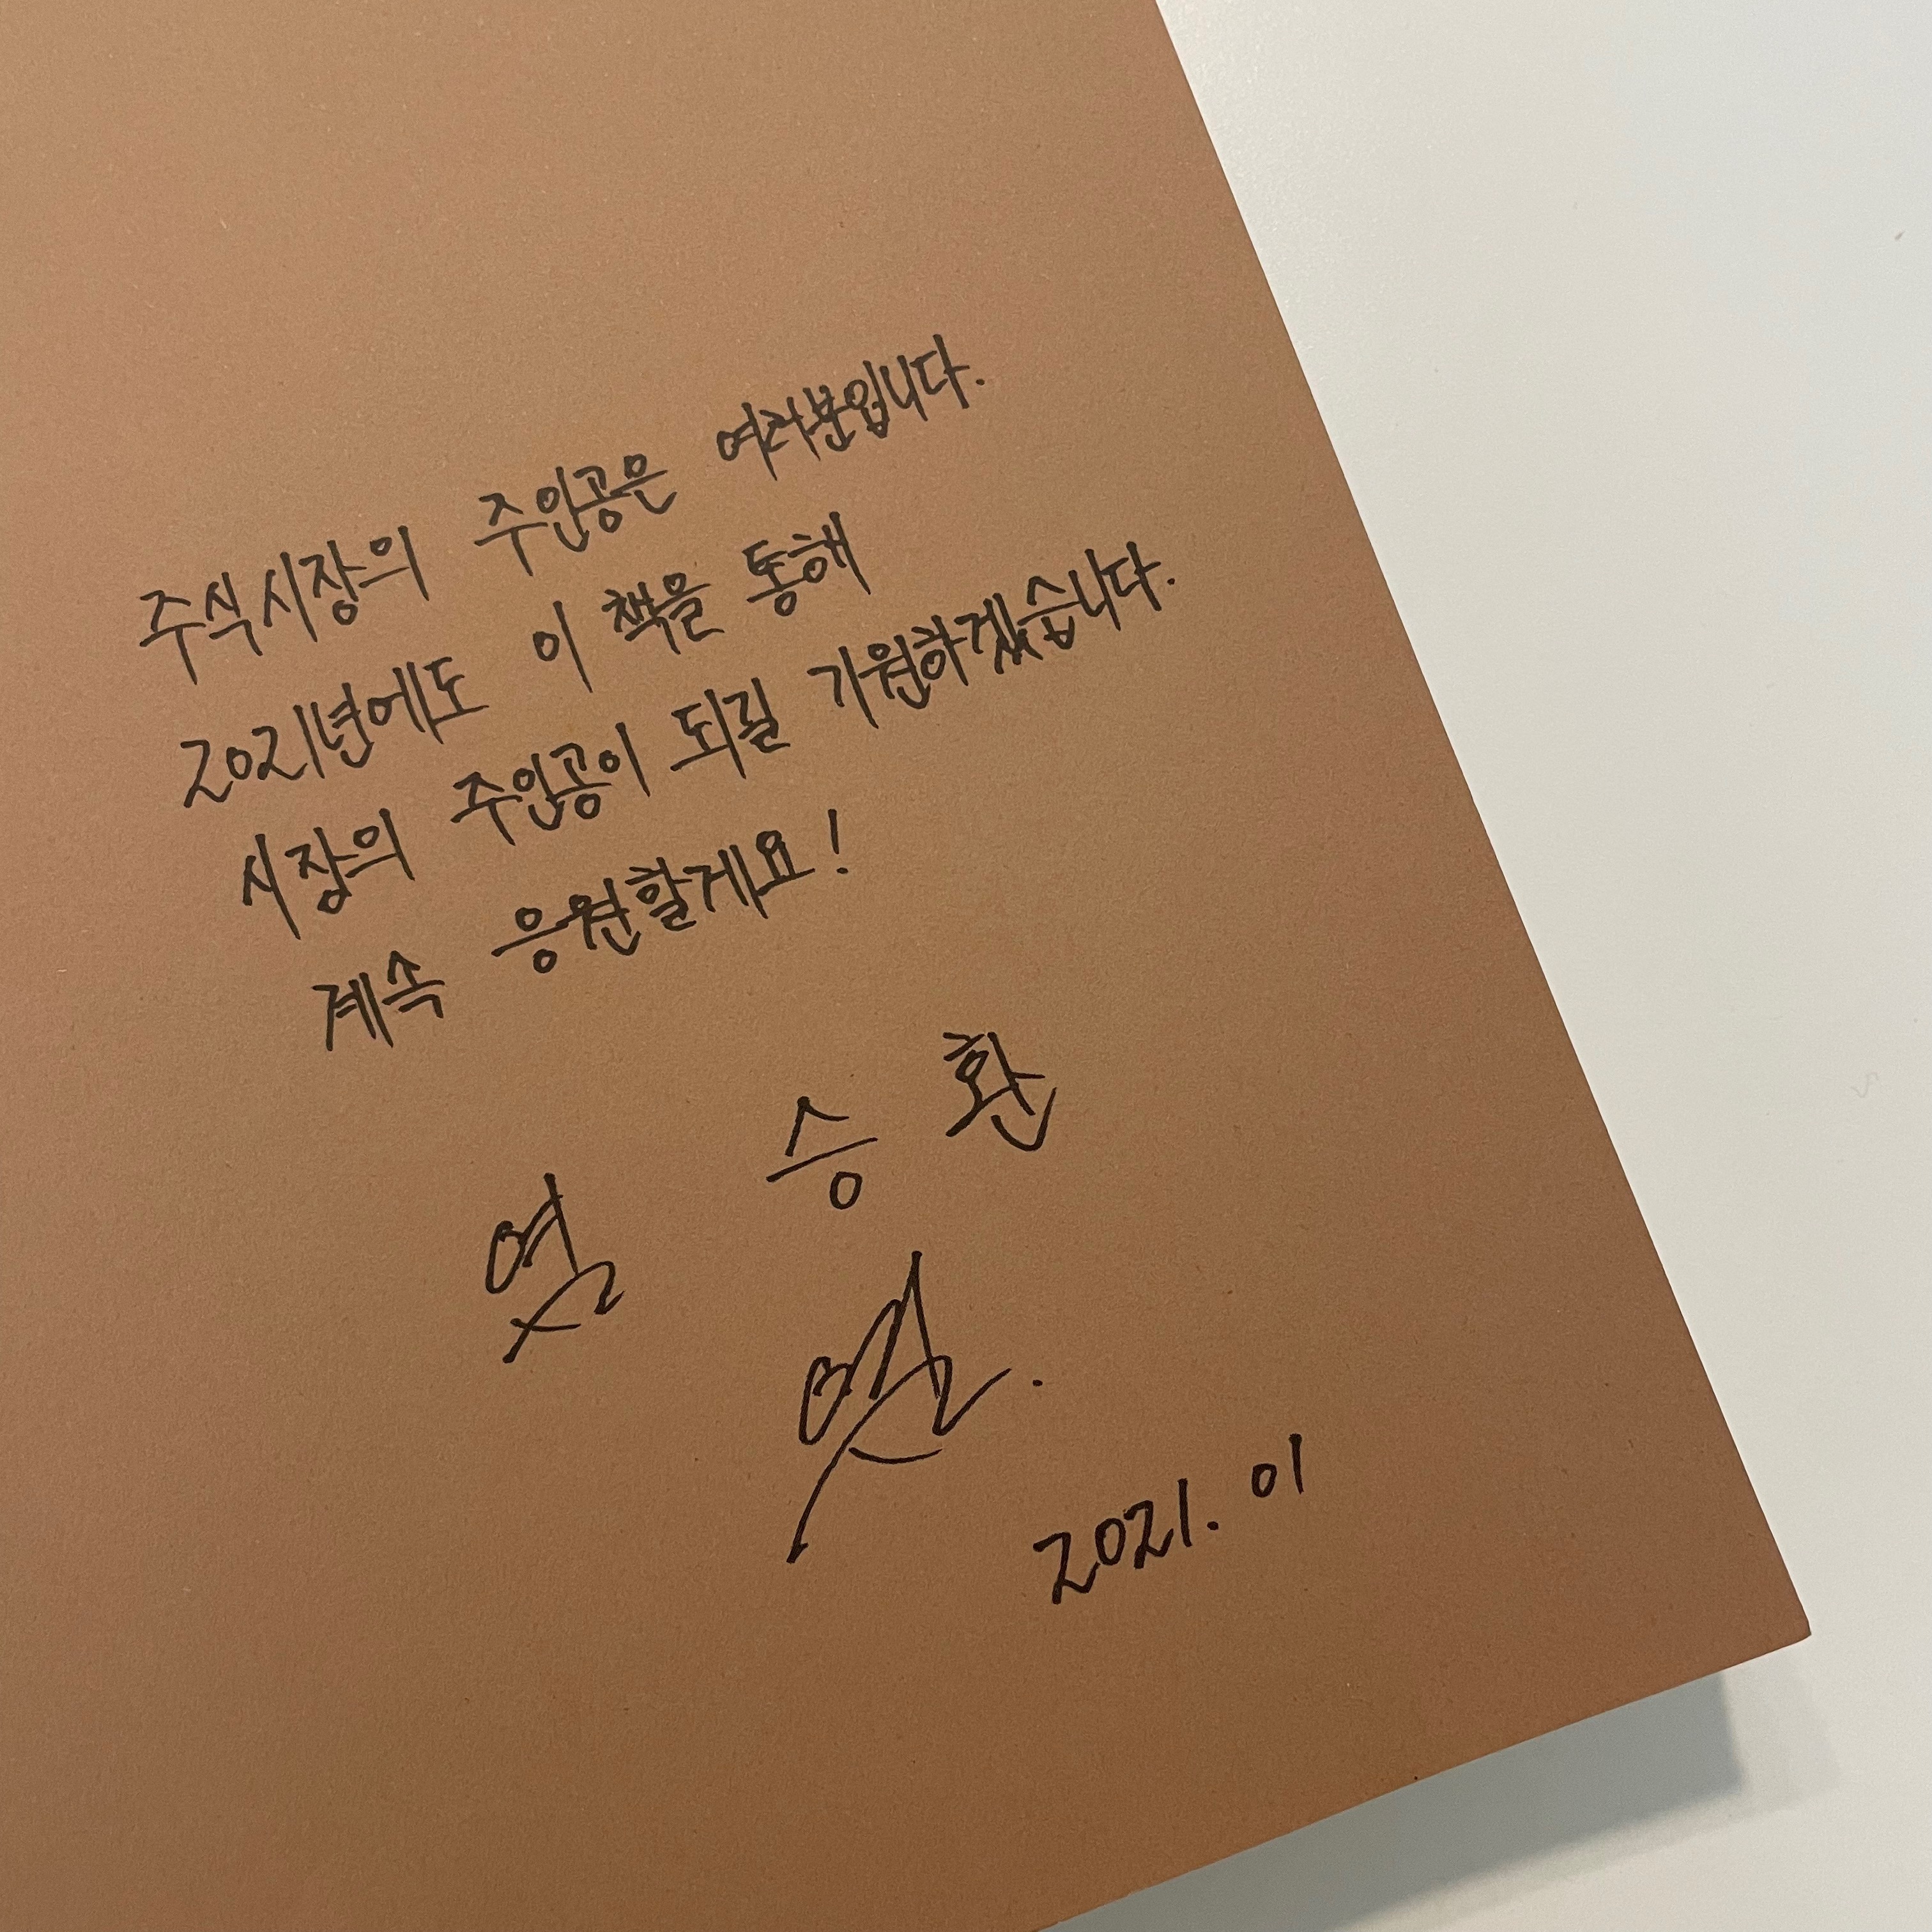 주식시장의 주인공은 여러분입니다.
2021년에도 이 책을 통해
시장의 주인공이 되길 기원하겠습니다.
계속 응원할게요!
염 승 환
2021. 01